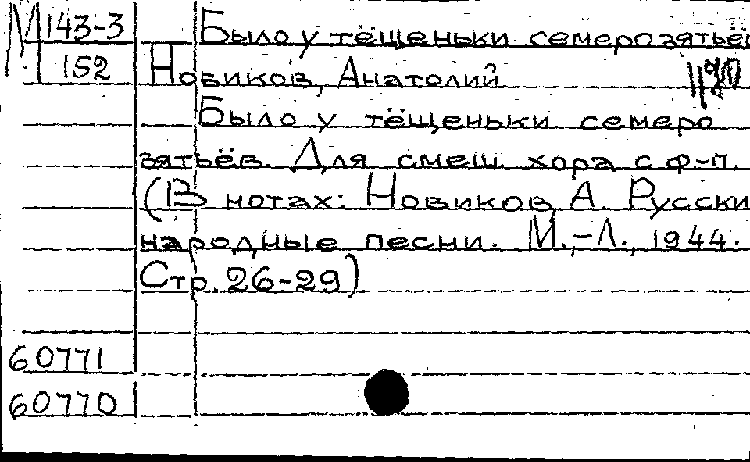 М 143-3 Было у тёщеньки семеро зятьёв
152 Новиков, Анатолий
Было у тёщеньки семеро
зятьёв. Для смеш. хора с ф-п.
(В нотах: Новиков А. Русски
народные песни. М.,-Л., 1944.
Стр. 26-29)
60771
60770